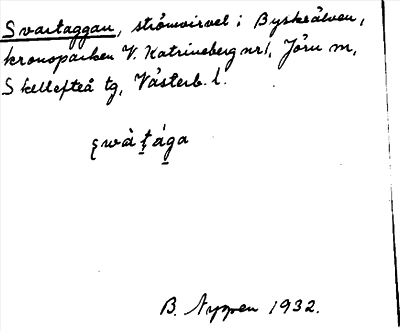 Svartaggan, strömvirvel i Byskeälven,
kronoparken V. Katrineberg nr 1, Jörn sn,
Skellefteå tg, Västerb. l.
B. Nyppen 1932.